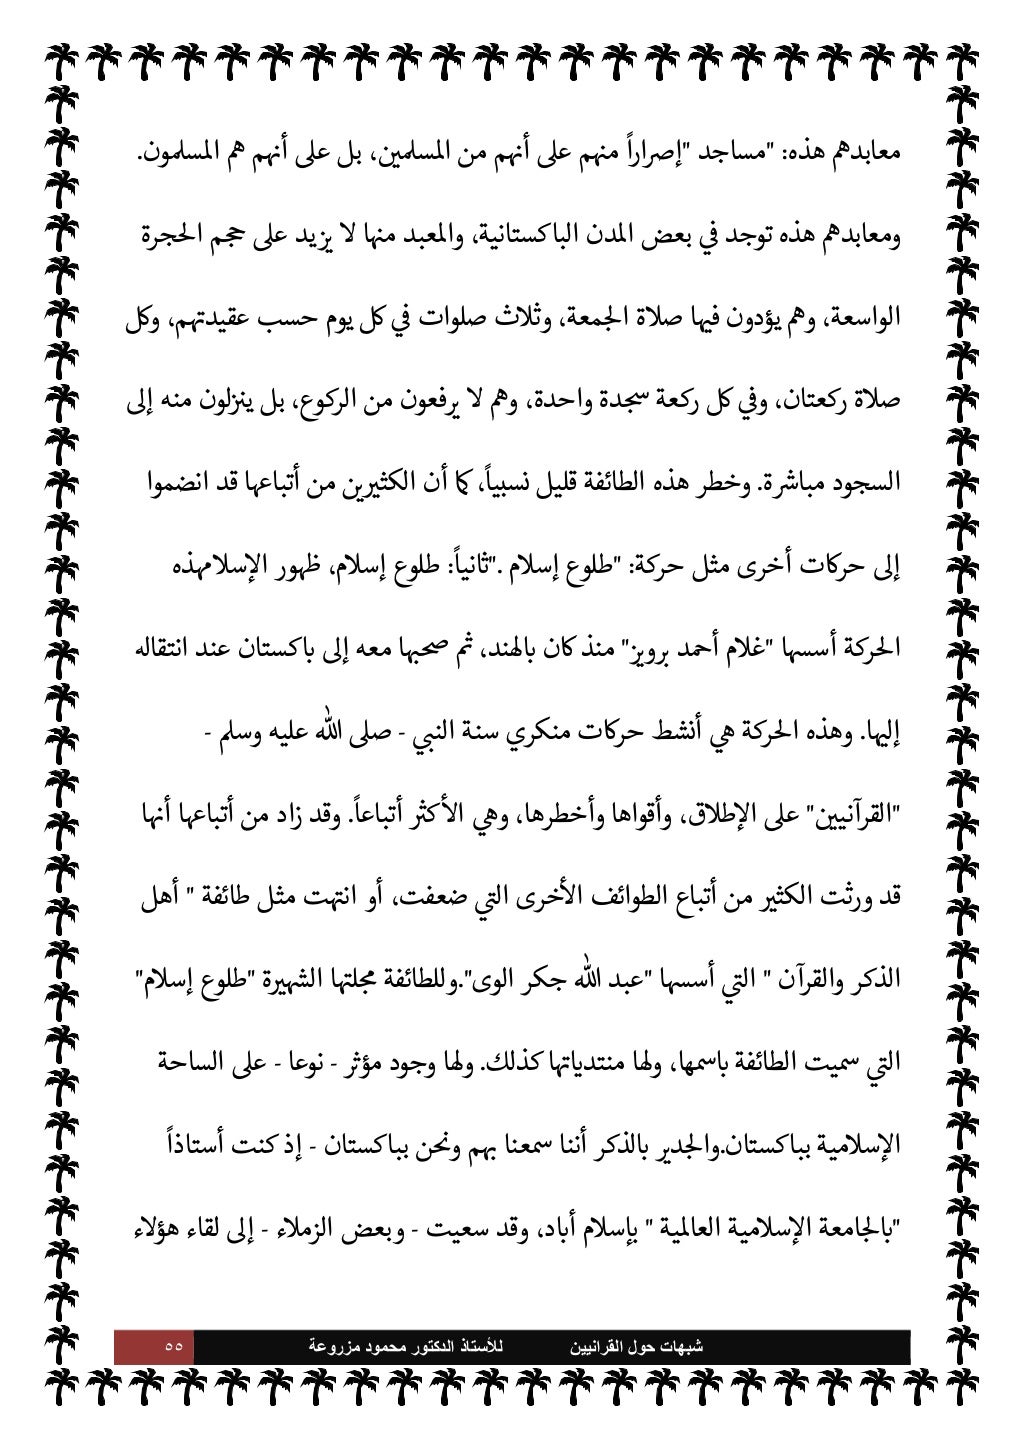 معابدهم هذه: "مساجد "إصراراً منهم على أنهم من المسلمين، بل على أنهم هم المسلمون.
ومعابدهم هذه توجد في بعض المدن الباكستانية، والمعبد منها لا يزيد على حجم الحجرة
الواسعة، وهم يؤدون فيها صلاة الجمعة، وثلاث صلوات في كل يوم حسب عقيدتهم، وكل
صلاة ركعتان، وفي كل ركعة سجدة واحدة، وهم لا يرفعون من الركوع، بل ينزلون منه إلى
السجود مباشرة. وخطر هذه الطائفة قليل نسبياً، كما أن الكثيرين من أتباعها قد انضموا
إلى حركات أخرى مثل حركة: "طلوع إسلام ."ثانياً: طلوع إسلام، ظهور الإسلامهذه
الحركة أسسها "غلام أحمد برويز" منذ كان بالهند، ثم صحبها معه إلى باكستان عند انتقاله
إليها. وهذه الحركة هي أنشط حركات منكري سنة النبي - صلى الله عليه وسلم -
"القرآنيين" على الإطلاق، وأقواها وأخطرها، وهي الأكثر أتباعاً. وقد زاد من أتباعها أنها
قد ورثت الكثير من أتباع الطوائف الأخرى التي ضعفت، أو انتهت مثل طائفة " أهل
الذكر والقرآن " التي أسسها "عبد الله جكر الوى".وللطائفة مجلتها الشهيرة "طلوع إسلام"
التي سميت الطائفة باسمها، ولها منتدياتها كذلك. ولها وجود مؤثر - نوعا - على الساحة
الإسلامية بباكستان.والجدير بالذكر أننا سمعنا بهم ونحن بباكستان - إذ كنت أستاذاً
"بالجامعة الإسلامية العالمية " بإسلام أباد، وقد سعيت - وبعض الزملاء - إلى لقاء هؤلاء
شبهات حول القرانيين للأستاذ الدكتور محمود مزروعة ٥٥